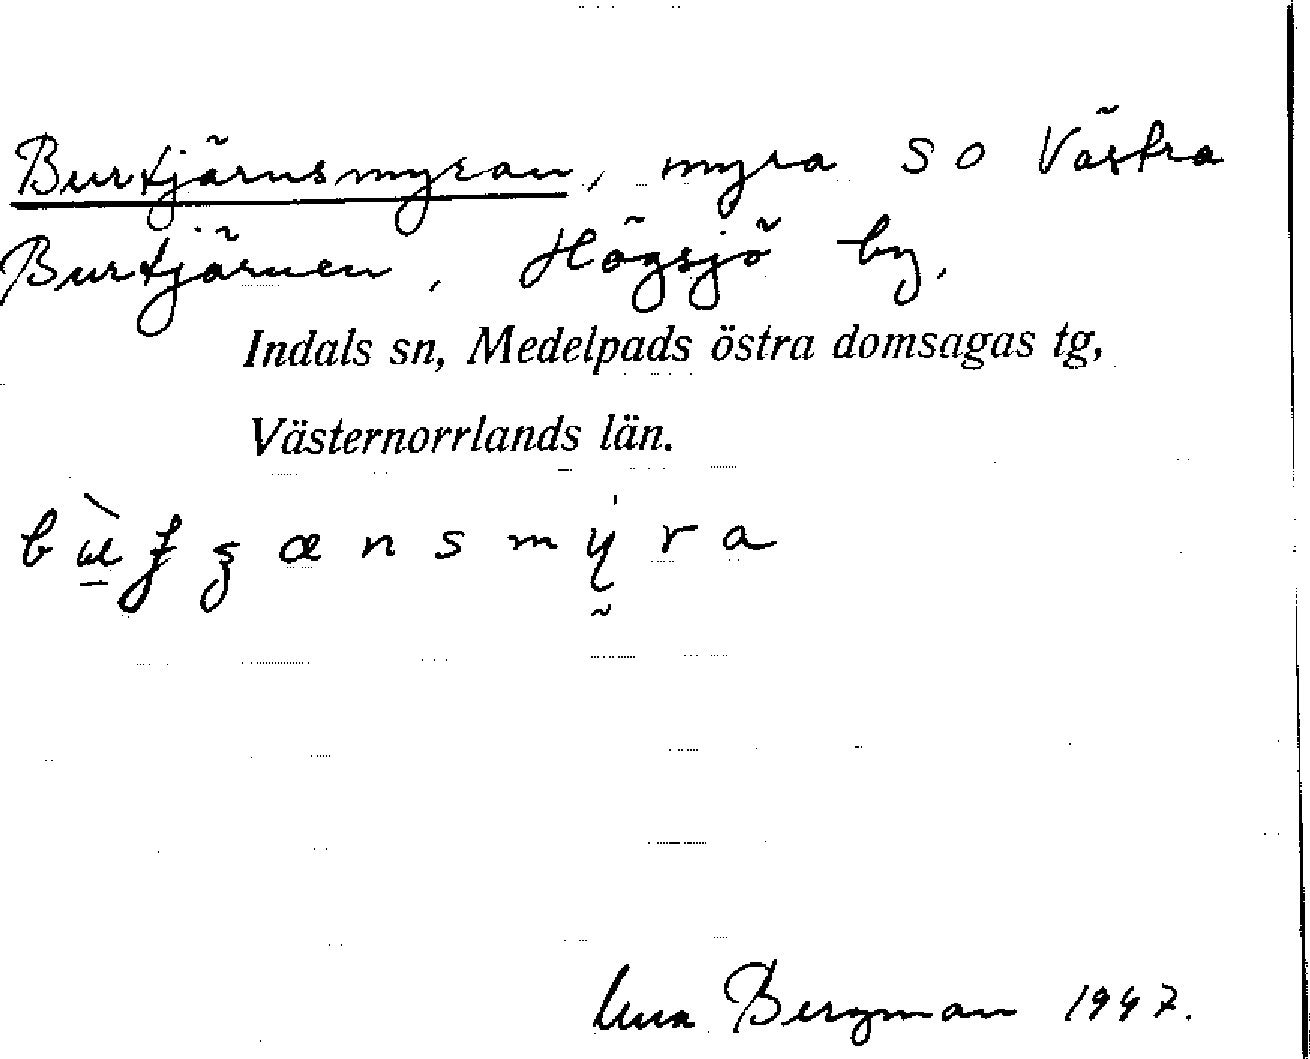 Burtjärnsmyran, myra SO Västra
Burtjärnen, Högsjö by,
Indals sn, Medelpads östra domsagas tg,
Västernorrlands län.
Bergman 1947.